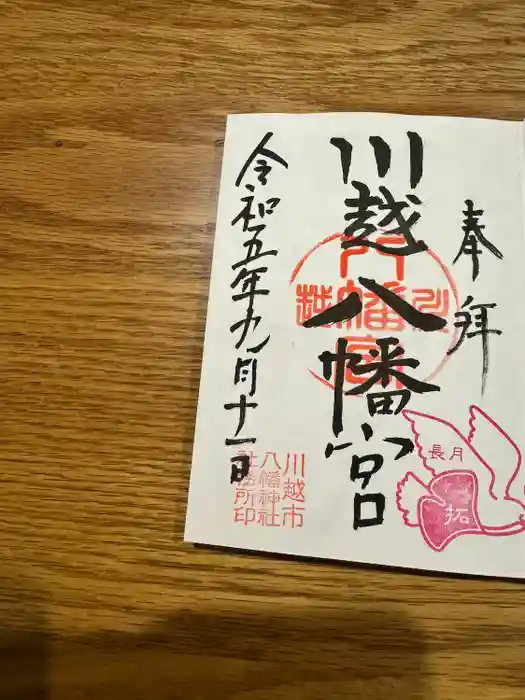 奉拝
川越八幡宮
令和五年九月十一日
川越市
八幡神社
社務所印
長月
拓